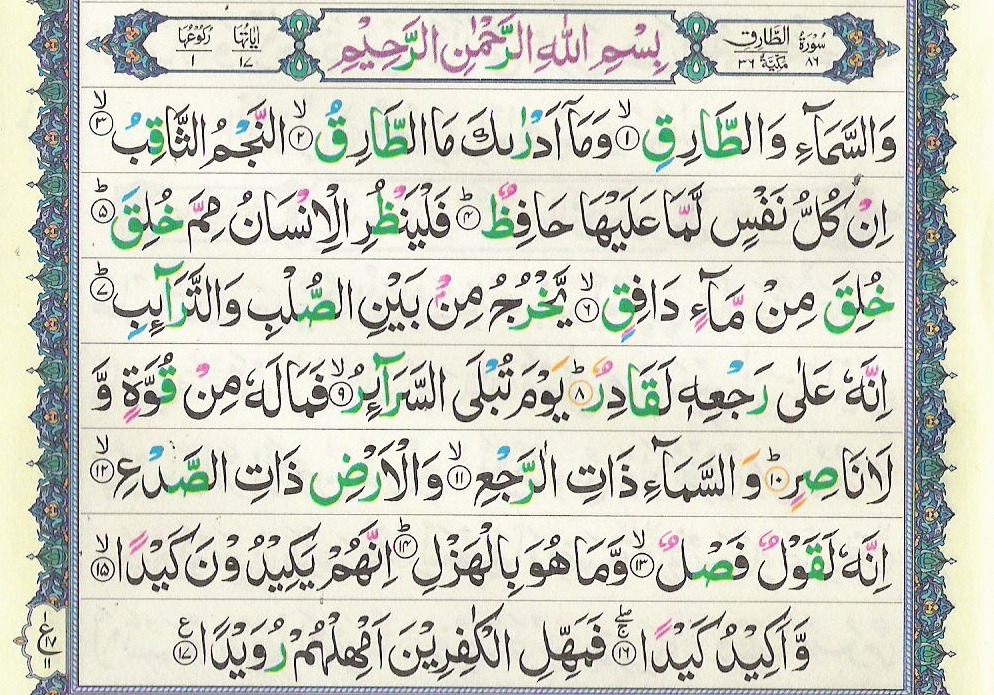 سُورَةُ الطَّارِقِ ٨٦ مَكِّيَّةٌ ٣٦
بِسْمِ اللهِ الرَّحْمٰنِ الرَّحِيْمِ
اٰيَاتُهَا ١٧ رُكُوْعُهَا ١
وَالسَّمَآءِ وَالطَّارِقِ ۙ﴿١﴾ وَمَآ اَدْرٰىكَ مَا الطَّارِقُ ۙ﴿٢﴾ النَّجْمُ الثَّاقِبُ ۙ﴿٣﴾
اِنْ كُلُّ نَفْسٍ لَّمَّا عَلَيْهَا حَافِظٌ ؕ﴿٤﴾ فَلْيَنْظُرِ الْاِنْسَانُ مِمَّ خُلِقَ ؕ﴿٥﴾
خُلِقَ مِنْ مَّآءٍ دَافِقٍ ۙ﴿٦﴾ يَّخْرُجُ مِنْۢ بَيْنِ الصُّلْبِ وَالتَّرَآئِبِ ؕ﴿٧﴾
اِنَّهٗ عَلٰى رَجْعِهٖ لَقَادِرٌ ؕ﴿٨﴾ يَوْمَ تُبْلَى السَّرَآئِرُ ۙ﴿٩﴾ فَمَا لَهٗ مِنْ قُوَّةٍ وَّ
لَا نَاصِرٍ ؕ﴿١٠﴾ وَالسَّمَآءِ ذَاتِ الرَّجْعِ ۙ﴿١١﴾ وَالْاَرْضِ ذَاتِ الصَّدْعِ ۙ﴿١٢﴾
اِنَّهٗ لَقَوْلٌ فَصْلٌ ۙ﴿١٣﴾ وَّمَا هُوَ بِالْهَزْلِ ؕ﴿١٤﴾ اِنَّهُمْ يَكِيْدُوْنَ كَيْدًا ۙ﴿١٥﴾
وَّاَكِيْدُ كَيْدًا ۚۖ﴿١٦﴾ فَمَهِّلِ الْكٰفِرِيْنَ اَمْهِلْهُمْ رُوَيْدًا ﴿١٧﴾ ع
١ ع ١٧ ١١